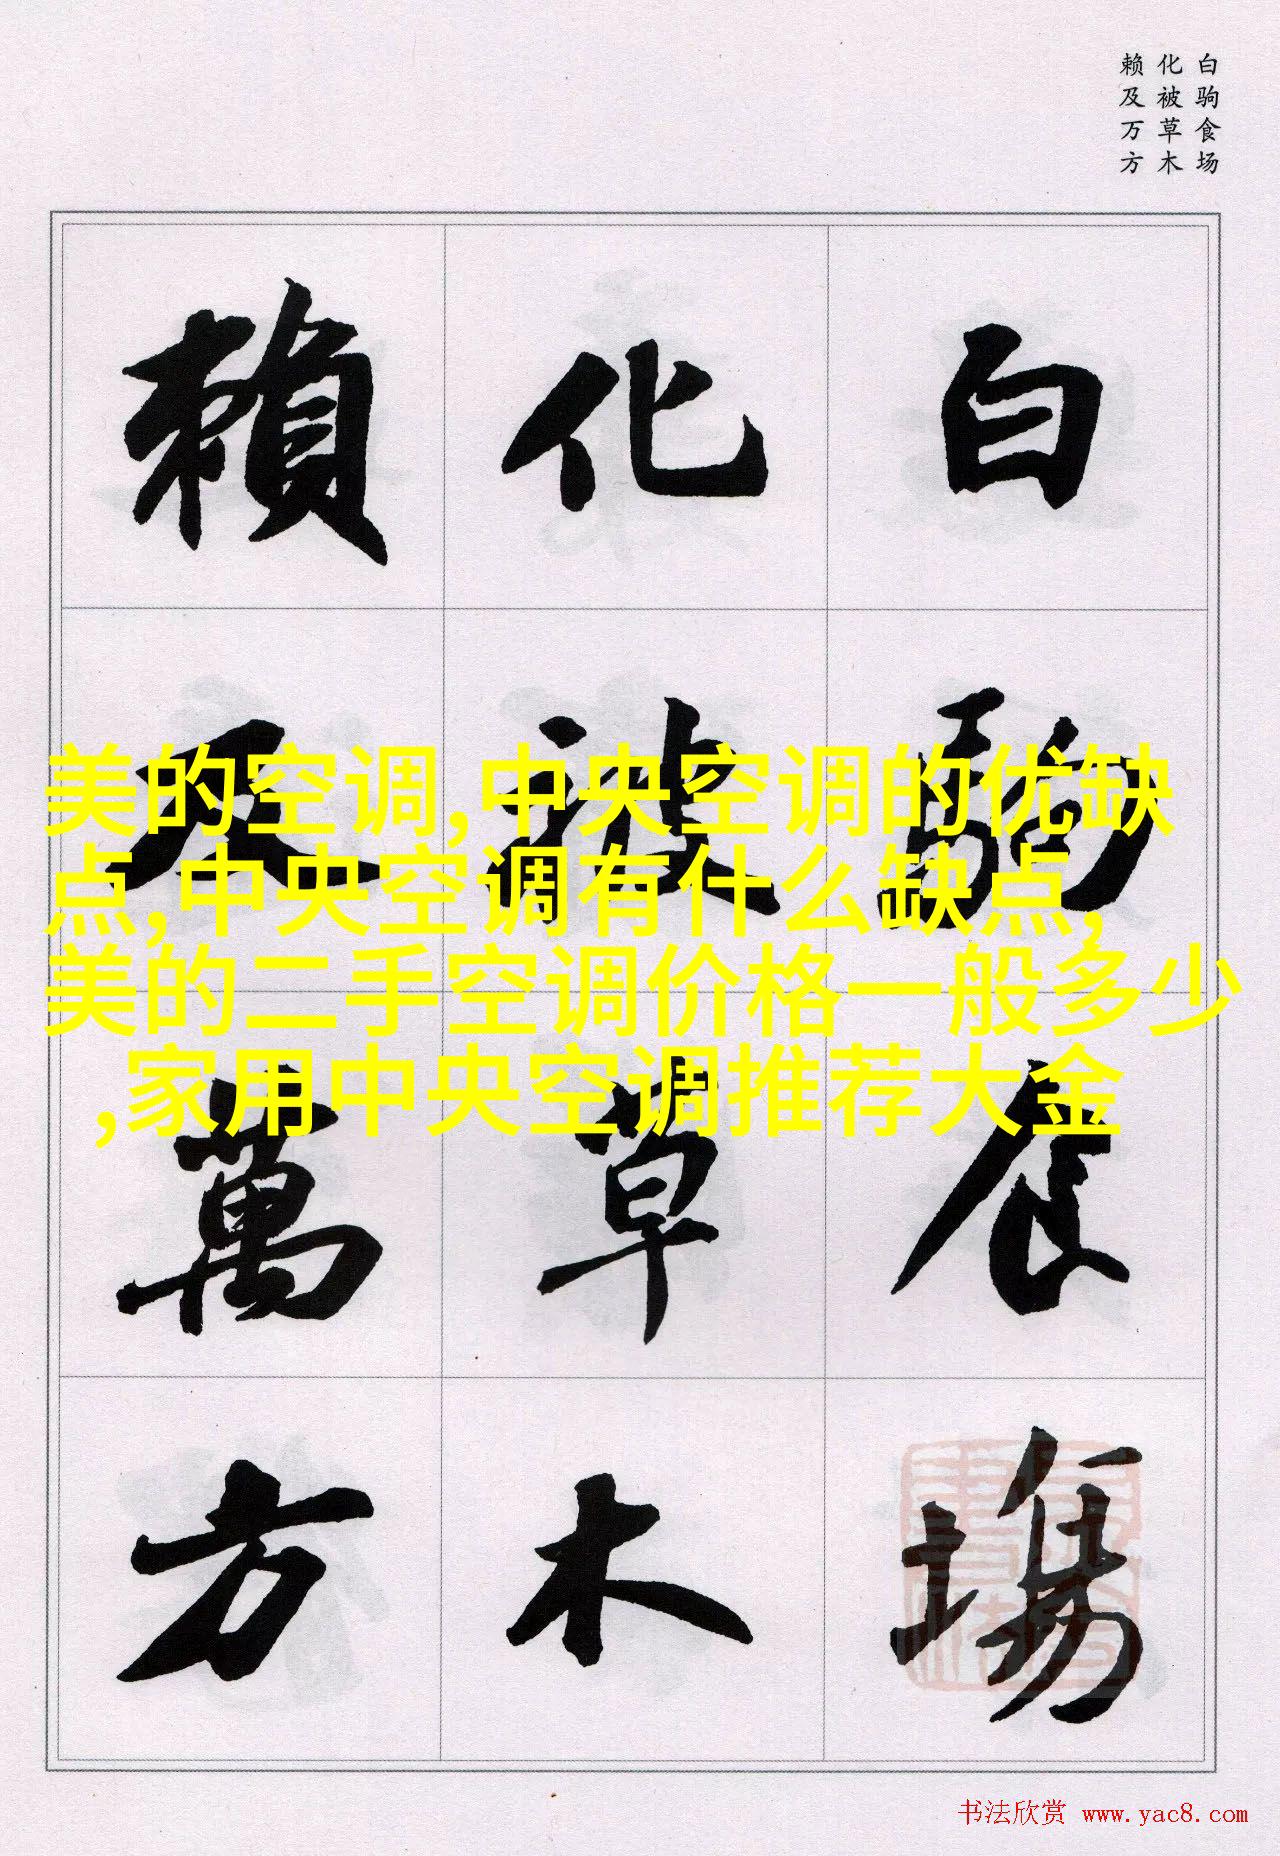 白驹食场
化被草木
赖及万方
白駒食場
化被草木
賴及萬方
美的空调,中央空调的优缺
点,中央空调有什么缺点,
美的二手空调价格一般多少
,家用中央空调推荐大金
书法欣赏 www.yac8.com